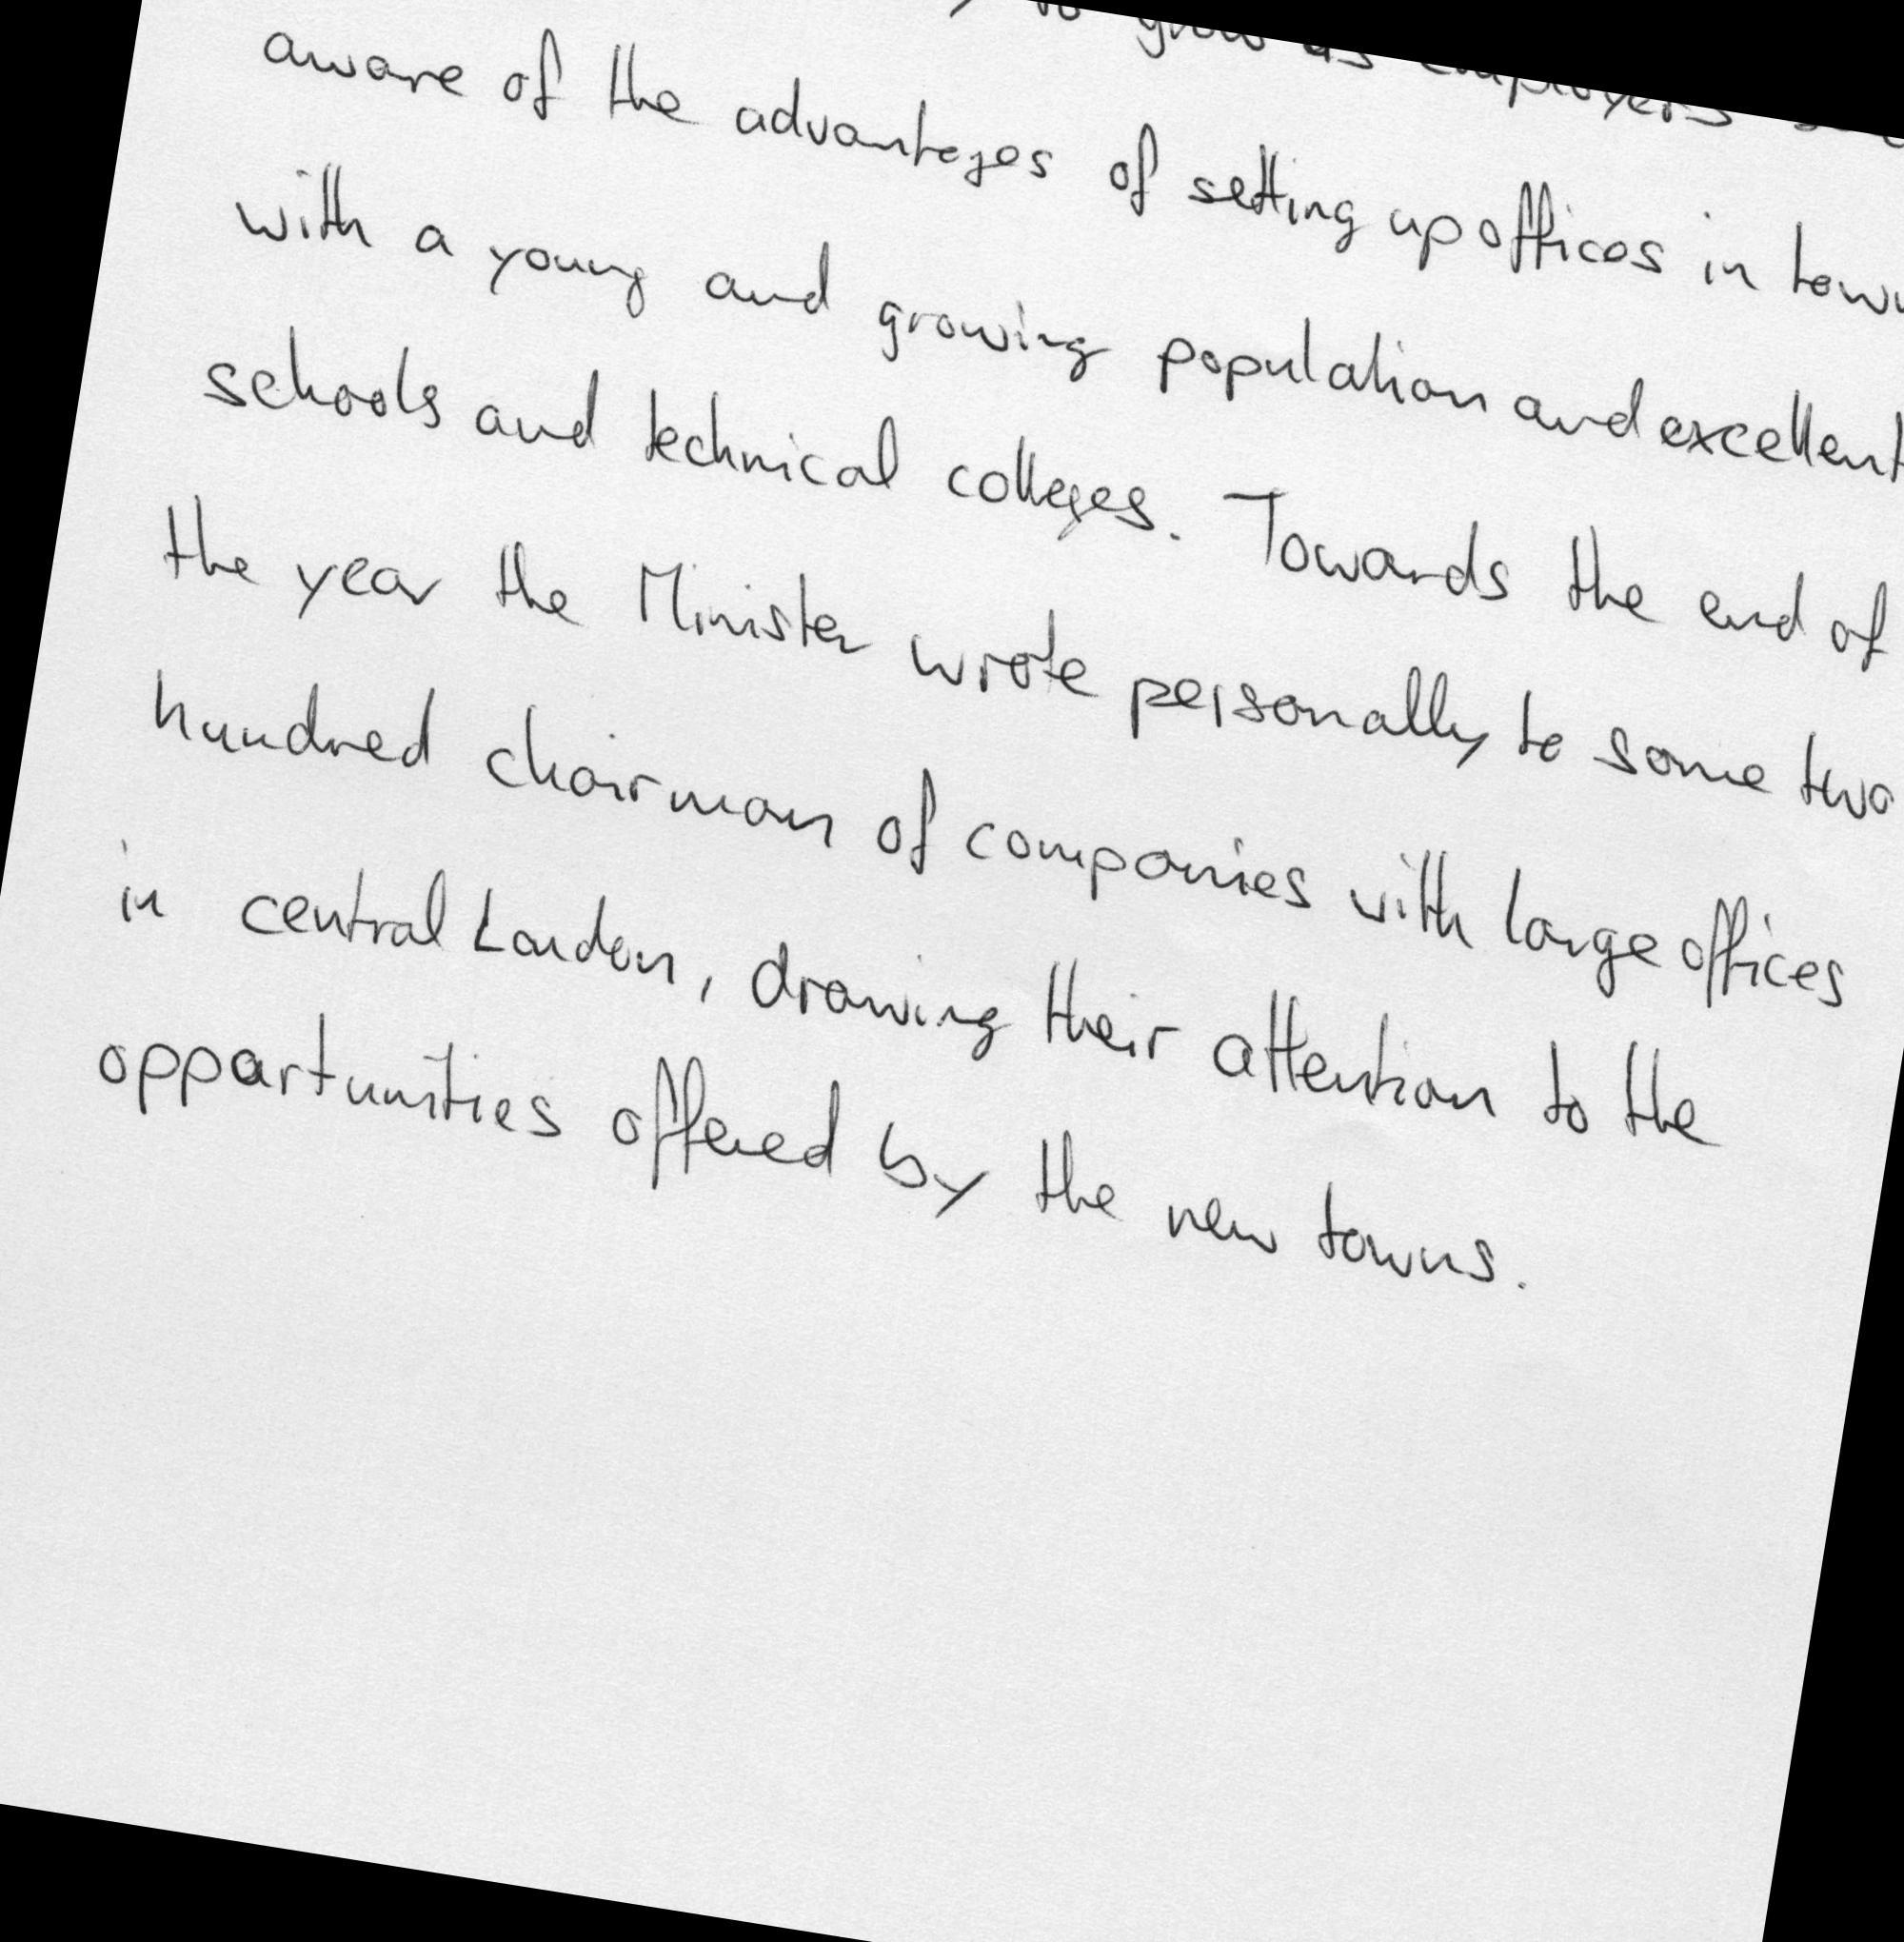 to grow as employers
aware of the advantages of setting up offices in town
with a young and growing population and excellent
schools and technical colleges. Towards the end of
the year the Minister wrote personally to some two
hundred chairman of companies with large offices
in central London, drawing their attention to the
opportunities offered by the new towns.